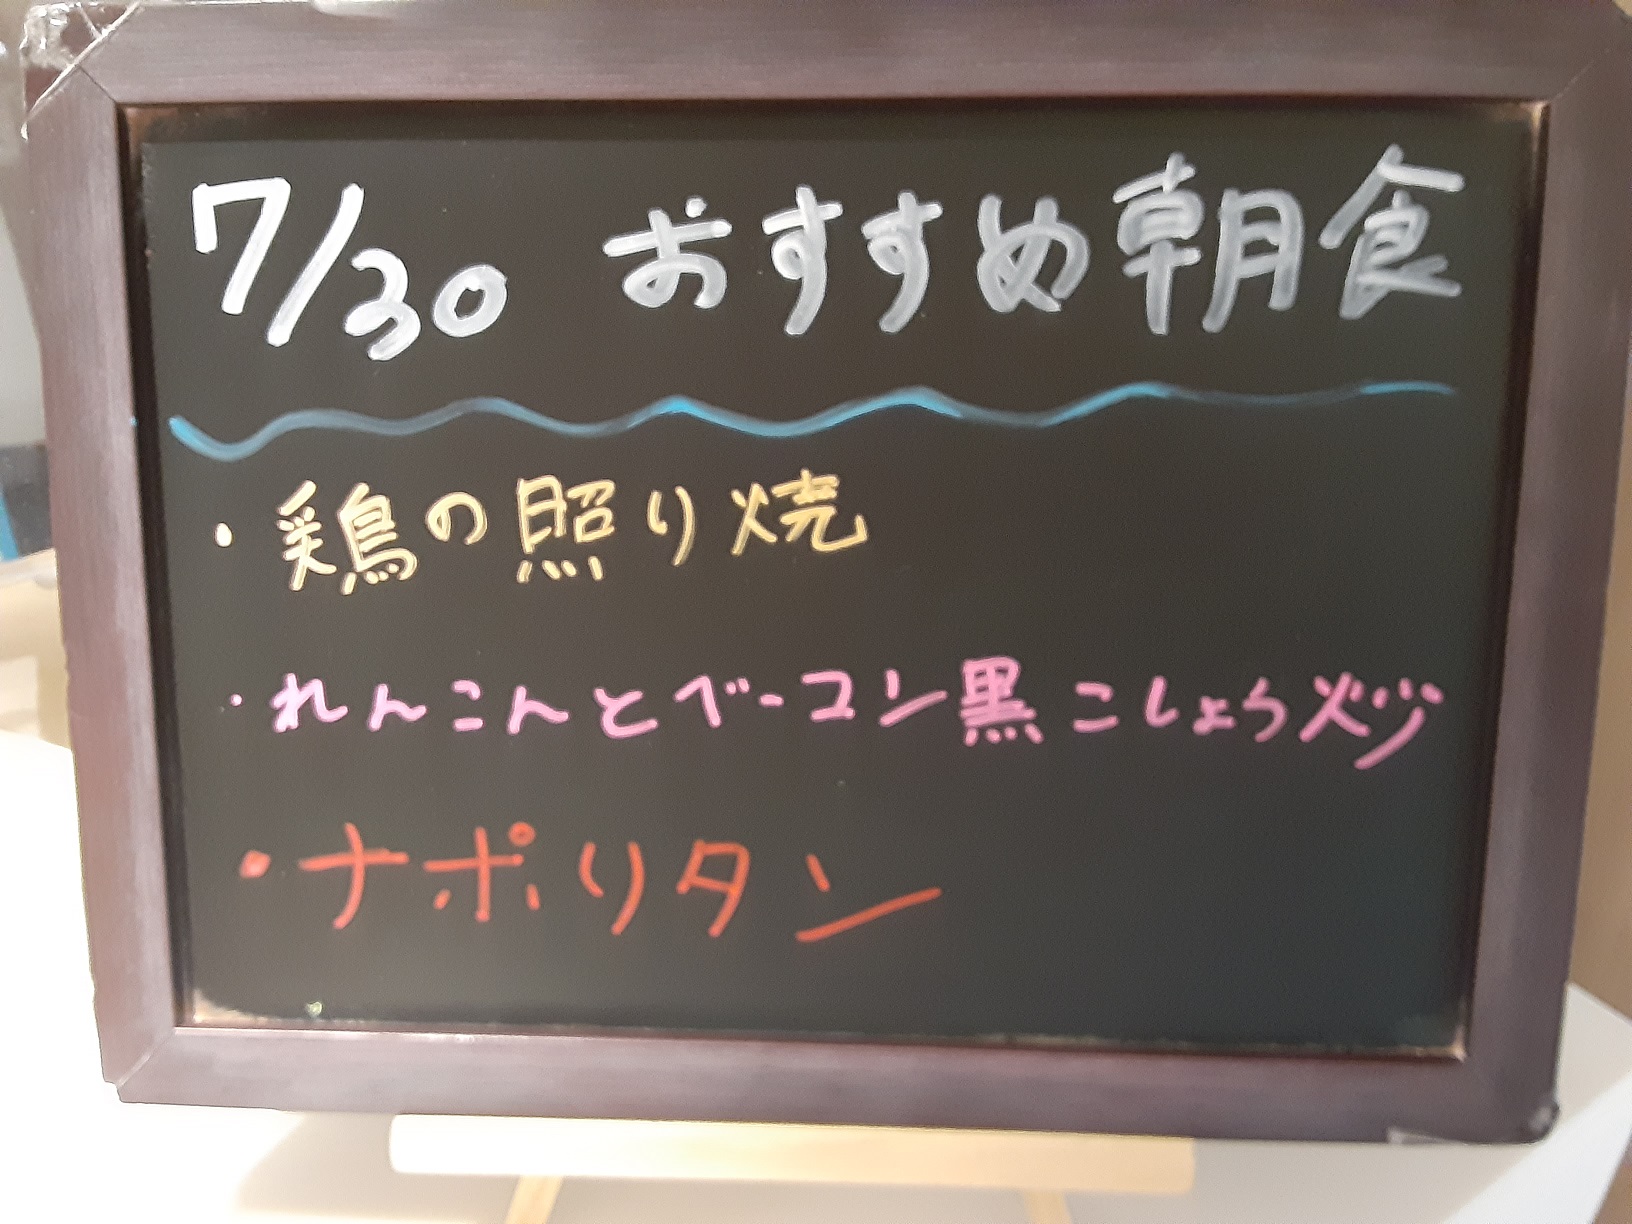 7/30 おすすめ朝食
・鶏の照り焼
・れんこんとベーコン黒こしょう炒
・ナポリタン